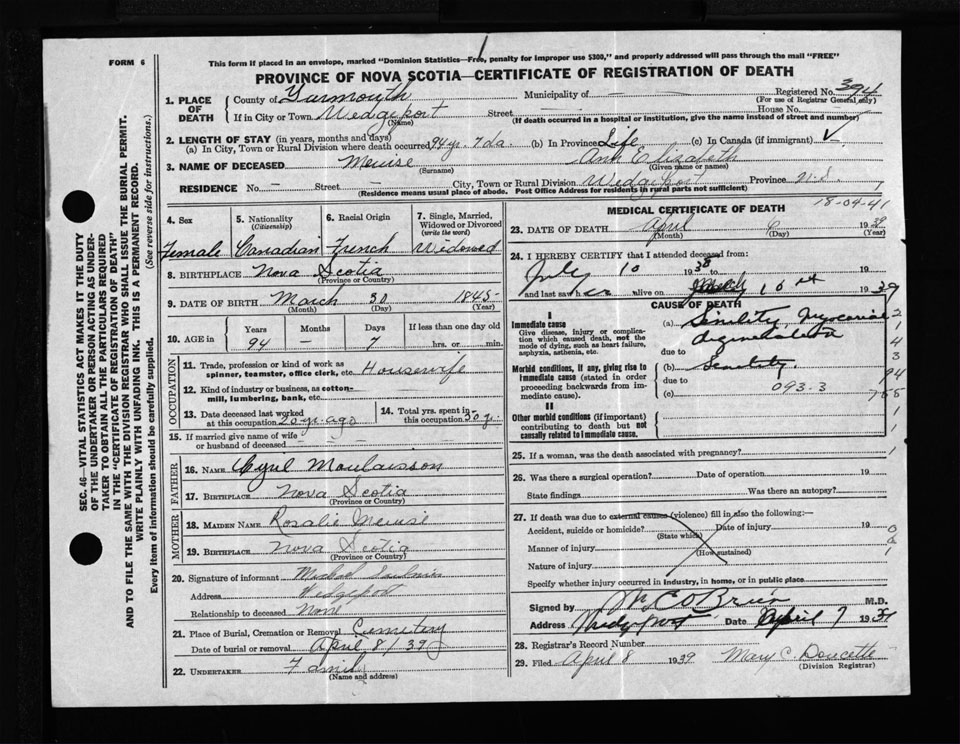 FORM 6
This form if placed in an envelope, marked "Dominion Statistics—Free, penalty for improper use $300," and properly addressed will pass through the mail "FREE"
PROVINCE OF NOVA SCOTIA—CERTIFICATE OF REGISTRATION OF DEATH
SEC. 46—VITAL STATISTICS ACT MAKES IT THE DUTY
OF THE UNDERTAKER OR PERSON ACTING AS UNDER-
TAKER TO OBTAIN ALL THE PARTICULARS REQUIRED
IN THE "CERTIFICATE OF REGISTRATION OF DEATH"
AND TO FILE THE SAME WITH THE DIVISION REGISTRAR WHO SHALL ISSUE THE BURIAL PERMIT.
WRITE PLAINLY WITH UNFADING INK. THIS IS A PERMANENT RECORD.
Every item of information should be carefully supplied. (See reverse side for instructions.)
1. PLACE OF DEATH
County of Yarmouth Municipality of — Registered No. 394
(For use of Registrar General only)
If in City or Town Wedgeport Street — House No.
(Name) (If death occurred in a hospital or institution, give the name instead of street and number)
2. LENGTH OF STAY (in years, months and days)
(a) In City, Town or Rural Division where death occurred 94 yr. 7 da. (b) In Province Life (c) In Canada (if immigrant) —
3. NAME OF DECEASED Meuise Ann Elizabeth
(Surname) (Given name or names)
RESIDENCE No. — Street — City, Town or Rural Division Wedgeport Province N.S.
(Residence means usual place of abode. Post Office Address for residents in rural parts not sufficient)
4. Sex Female
5. Nationality (Citizenship) Canadian
6. Racial Origin French
7. Single, Married, Widowed or Divorced (write the word) Widowed
8. BIRTHPLACE Nova Scotia
(Province or Country)
9. DATE OF BIRTH March 30 1845
(Month) (Day) (Year)
10. AGE in Years 94 Months — Days 7 If less than one day old hrs. or min.
OCCUPATION
11. Trade, profession or kind of work as spinner, teamster, office clerk, etc. Housewife
12. Kind of industry or business, as cotton-mill, lumbering, bank, etc.
13. Date deceased last worked at this occupation 20 yr. ago
14. Total yrs. spent in this occupation 50 y.
15. If married give name of wife or husband of deceased — — —
FATHER
16. NAME Cyril Moulaisson
17. BIRTHPLACE Nova Scotia
(Province or Country)
MOTHER
18. MAIDEN NAME Rosalie Meuise
19. BIRTHPLACE Nova Scotia
(Province or Country)
20. Signature of informant
Address Wedgeport
Relationship to deceased None
21. Place of Burial, Cremation or Removal Cemetery
Date of burial or removal April 8/39
22. UNDERTAKER Family
(Name and address)
18-04-41
MEDICAL CERTIFICATE OF DEATH
23. DATE OF DEATH April 6 1939
(Month) (Day) (Year)
24. I HEREBY CERTIFY that I attended deceased from:
July 10 1938 to 19
and last saw her alive on March 10th 1939
CAUSE OF DEATH
I
Immediate cause
Give disease, injury or complication which caused death, not the mode of dying, such as heart failure, asphyxia, asthenia, etc.
(a) Senility, Myocardial
degeneration
due to
Morbid conditions, if any, giving rise to immediate cause (stated in order proceeding backwards from immediate cause).
(b) Senility.
due to 093.3
(c)
II
Other morbid conditions (if important) contributing to death but not causally related to immediate cause.
25. If a woman, was the death associated with pregnancy?
26. Was there a surgical operation? Date of operation 19
State findings Was there an autopsy?
27. If death was due to external causes (violence) fill in also the following:
Accident, suicide or homicide? Date of injury 19
(State which)
Manner of injury
(How sustained)
Nature of injury
Specify whether injury occurred in industry, in home, or in public place
Signed by M.C. O'Brien M.D.
Address Wedgeport Date April 7 1939
28. Registrar's Record Number
29. Filed April 8 1939 Mary C. Doucette
(Division Registrar)